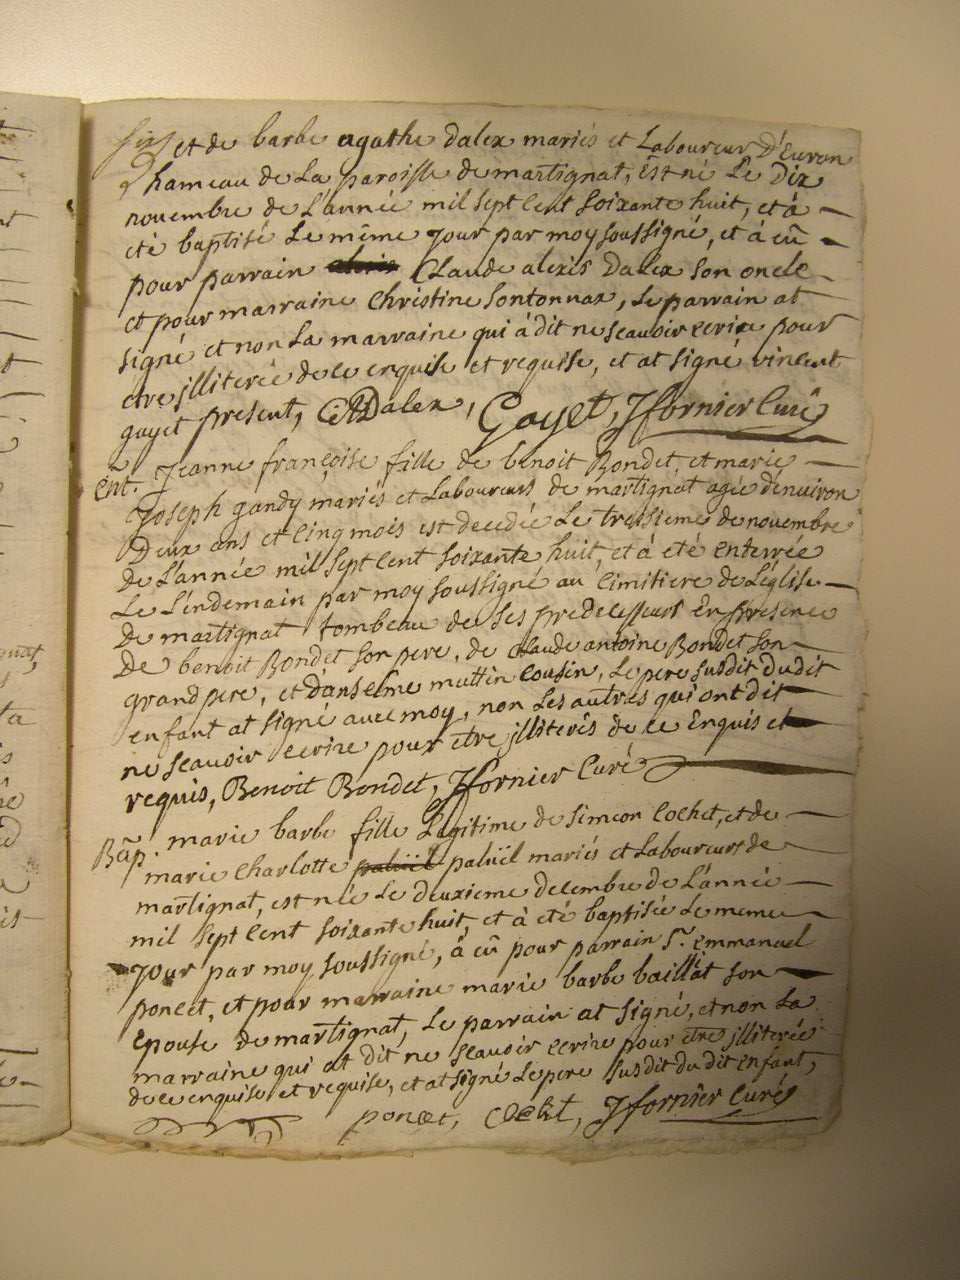 et de barbe agathe dalex mariés et Laboureur D'Evron
hameau de La paroisse de martignat, Est né Le Dix
novembre de L'année mil sept cent soixante huit, et á
eté baptisé Le même jour par moy soussigné, et á eû
pour parrain Claude alexis Dalex son oncle
et pour marraine Christine sontonnax, Le parrain at
signé et non La marraine qui á dit ne scavoir ecrire pour
etre jlliterée de ce enquise et requise, et at signé vincent
gayet present, Dalex, Gayet, Jfornier Curé
Ent. Jeanne françoise fille de benoit Bondet, et marie
Joseph gandy mariés et Laboureurs de martignat agée d'environ
Deux ans et cinq mois est decedée Le troisieme de novembre
de L'année mil sept cent soixante huit, et á eté enterrée
Le L'endemain par moy soussigné au Cimitiere de L'église
De martignat tombeau de ses predecesseurs En presence
De benoit Bondet son pere, de Claude antoine Bondet son
grand pere, et d'anselme muttin cousin, Le pere susdit dudit
enfant at signé avec moy, non Les autres qui ont dit
ne scavoir ecrire pour être jlliterés de ce Enquis et
requis, Benoit Bondet, Jfornier Curé
Bap. marie barbe fille Legitime de simeon Cochet, et de
marie Charlotte paluiel paluiel mariés et Laboureurs de
martignat, est née Le deuxieme decembre de L'année
mil sept cent soixante huit, et á eté baptisée Le meme
jour par moy soussigné, á eû pour parrain Sr. emmanuel
poncet, et pour marraine marie barbe baillat son
Epouse de martignat, Le parrain at signé, et non La
marraine qui at dit ne scavoir ecrire pour être jlliterée
de ce enquise et requise, et at signé Le pere susdit du dit enfant,
poncet, Jfornier Curé